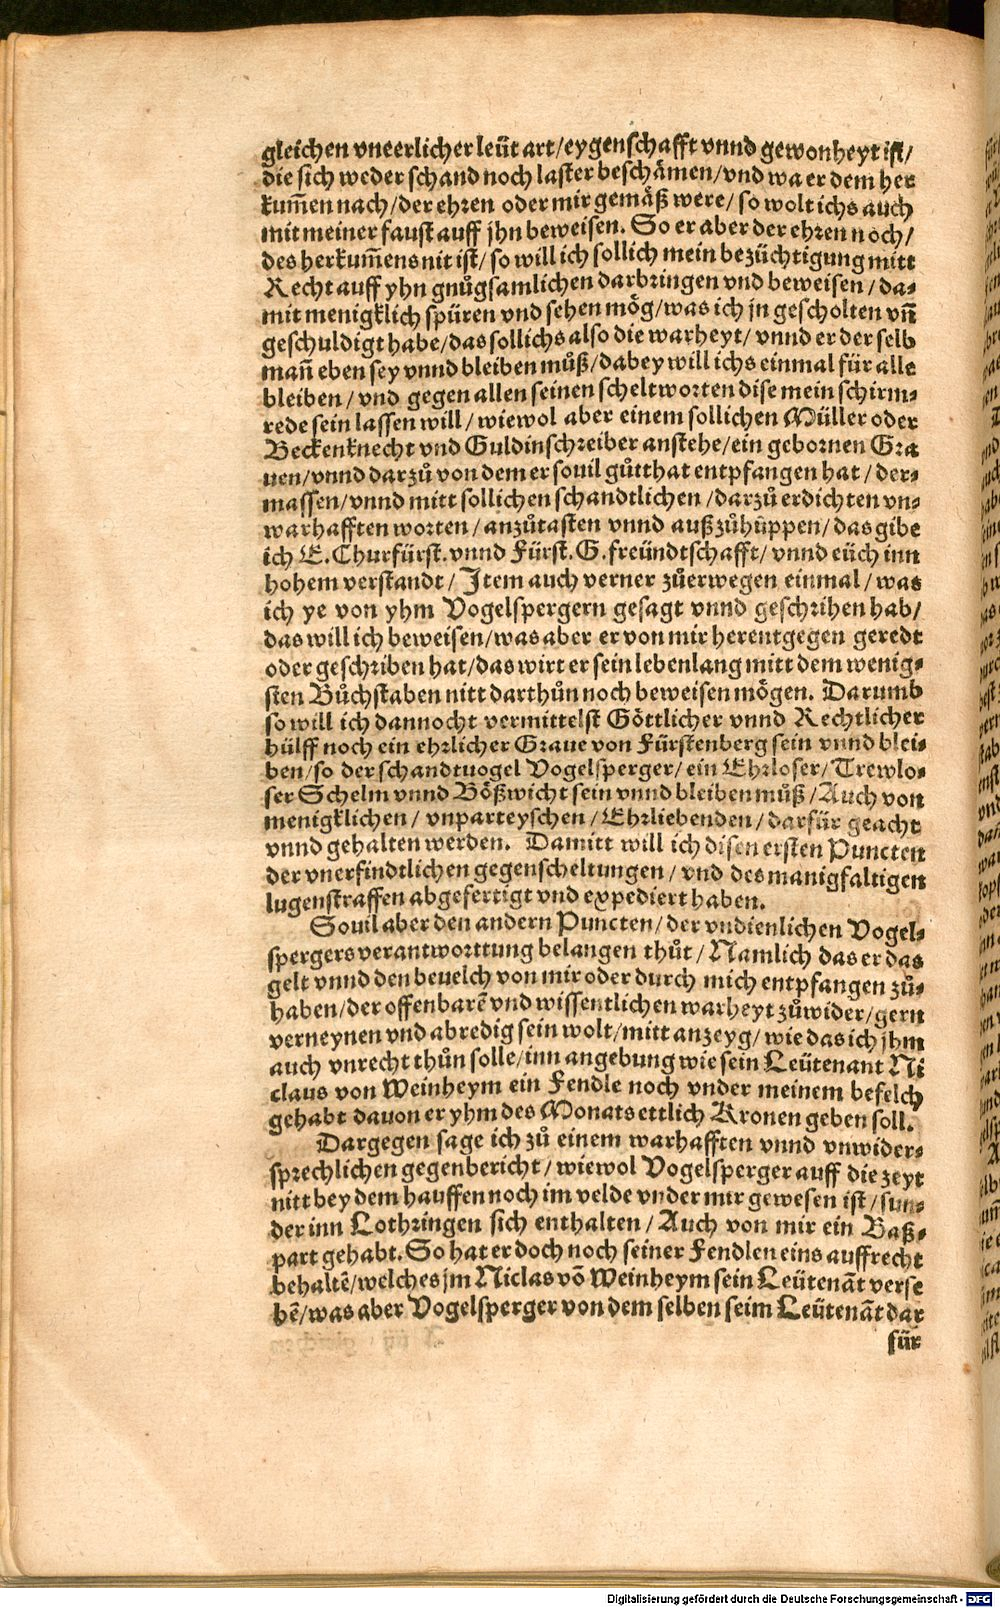 gleichen vneerlicher leüt art/eygenschafft vnnd gewonheyt ist/
die sich weder schand noch laster beschämen/vnd wa er dem her
kum̄en nach/der ehren oder mir gemäß were/so wolt ichs auch
mit meiner faust auff jhn beweisen. So er aber der ehren noch/
des herkum̄ens nit ist/so will ich sollich mein bezüchtigung mitt
Recht auff yhn gnůgsamlichen darbringen vnd beweisen/da⸗
mit menigklich spüren vnd sehen mög/was ich jn gescholten vn̄
geschuldigt habe/das sollichs also die warheyt/vnnd er der selb
man̄ eben sey vnnd bleiben můß/dabey will ichs einmal für alle
bleiben/vnd gegen allen seinen scheltworten dise mein schirm⸗
rede sein lassen will/wiewol aber einem sollichen Müller oder
Beckenknecht vnd Guldinschreiber anstehe/ein gebornen Gra
uen/vnnd darzů von dem er souil gůtthat entpfangen hat/der⸗
massen/vnnd mitt sollichen schandtlichen/darzů erdichten vn⸗
warhafften worten/anzůtasten vnnd außzůhüppen/das gibe
ich E. Churfürst. vnnd Fürst. G. freündtschafft/vnnd eüch inn
hohem verstandt/Item auch verner zůerwegen einmal/was
ich ye von yhm Vogelspergern gesagt vnnd geschrihen hab/
das will ich beweisen/was aber er von mir herentgegen geredt
oder geschriben hat/das wirt er sein lebenlang mitt dem wenig⸗
sten Bůchstaben nitt darthůn noch beweisen mögen. Darumb
so will ich dannocht vermittelst Göttlicher vnnd Rechtlicher
hülff noch ein ehrlicher Graue von Fürstenberg sein vnnd blei⸗
ben/so der schandtuogel Vogelsperger/ein Ehrloser/Trewlo⸗
ser Schelm vnnd Bößwicht sein vnnd bleiben můß/Auch von
menigklichen/vnparteyschen/Ehrliebenden/darfür geacht
vnnd gehalten werden. Damitt will ich disen ersten Puncten
der vnerfindtlichen gegenscheltungen/vnd des manigfaltigen
lugenstraffen abgefertigt vnd expediert haben.
Souil aber den andern Puncten/der vndienlichen Vogel⸗
spergers verantworttung belangen thůt/Namlich das er das
gelt vnnd den beuelch von mir oder durch mich entpfangen zů⸗
haben/der offenbarē vnd wissentlichen warheyt zůwider/gern
verneynen vnd abredig sein wolt/mitt anzeyg/wie das ich jhm
auch vnrecht thůn solle/inn angebung wie sein Leütenant Ni
claus von Weinheym ein Fendle noch vnder meinem befelch
gehabt dauon er yhm des Monats ettlich Kronen geben soll.
Dargegen sage ich zů einem warhafften vnnd vnwider⸗
sprechlichen gegenbericht/wiewol Vogelsperger auff die zeyt
nitt bey dem hauffen noch im velde vnder mir gewesen ist/sun⸗
der inn Lothringen sich enthalten/Auch von mir ein Baß⸗
part gehabt. So hat er doch noch seiner Fendlen eins auffrecht
behaltē/welches jm Niclas vō Weinheym sein Leütenāt verse
hē/was aber Vogelsperger von dem selben seim Leütenāt dar
für
Digitalisierung gefördert durch die Deutsche Forschungsgemeinschaft - DFG